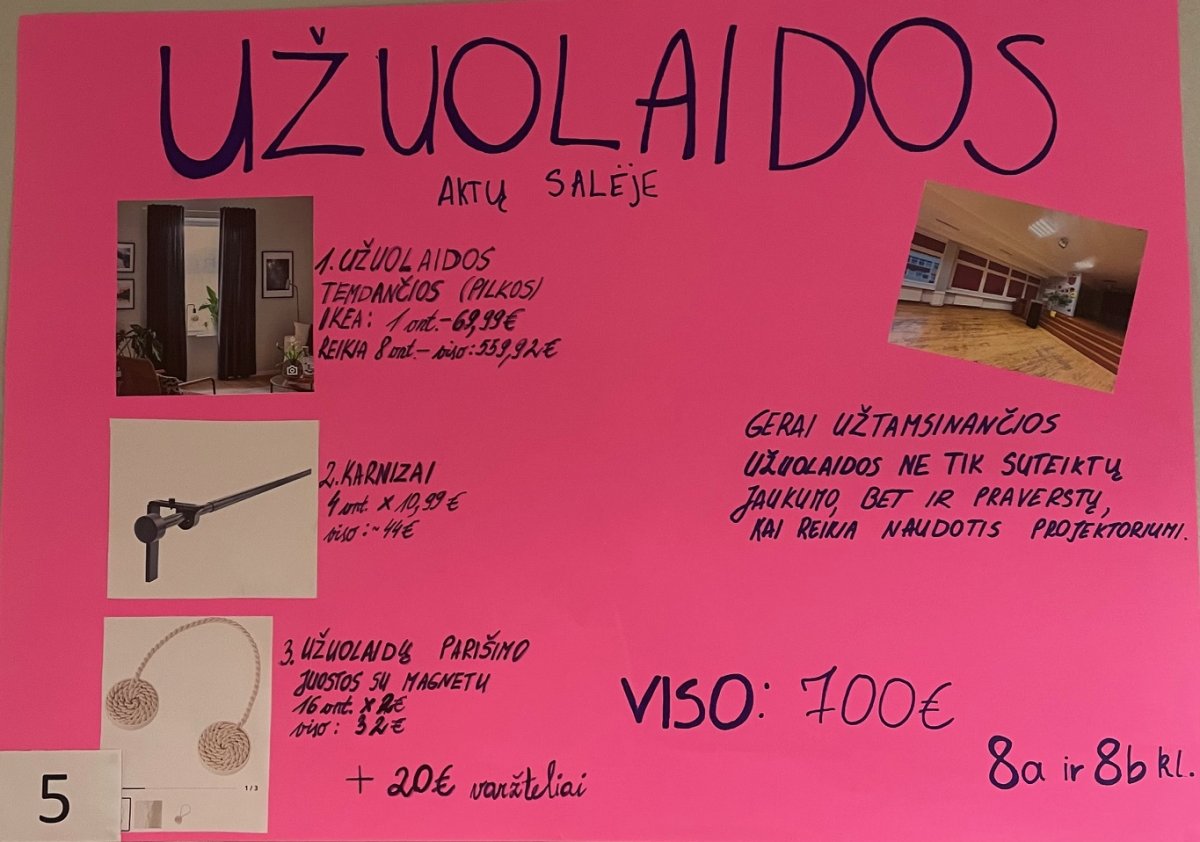 UŽUOLAIDOS
AKTŲ SALĖJE
1. UŽUOLAIDOS
TEMDANČIOS (PILKOS)
IKEA: 1 vnt. - 69,99€
REIKIA 8 vnt. - viso: 559,92€
2. KARNIZAI
4 vnt. x 10,99€
viso: ~44€
3. UŽUOLAIDŲ PARIŠIMO
JUOSTOS SU MAGNETU
16 vnt. x 2€
viso: 32€
+ 20€ varžteliai
GERAI UŽTAMSINANČIOS
UŽUOLAIDOS NE TIK SUTEIKTŲ
JAUKUMO, BET IR PRAVERSTŲ,
KAI REIKIA NAUDOTIS PROJEKTORIUMI.
VISO: 700€
8a ir 8b kl.
1/3
5